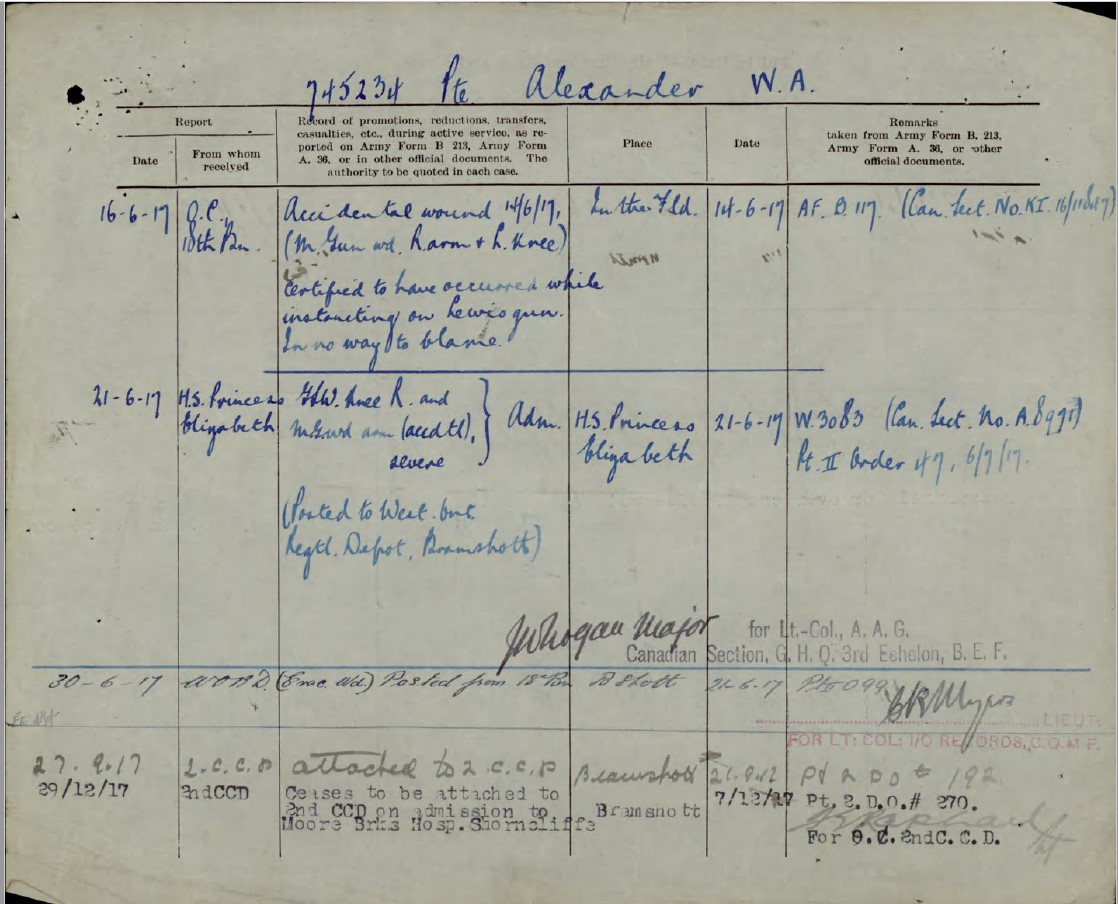 745234 Pte Alexander W.A.
Report
Date
From whom
received
Record of promotions, reductions, transfers,
casualties, etc., during active service, as re-
ported on Army Form B 213, Army Form
A. 36, or in other official documents. The
authority to be quoted in each case.
Place
Date
Remarks
taken from Army Form B. 213,
Army Form A. 36, or other
official documents.
16-6-17 O.C., Accidental wound 14/6/17, In the Fld. 14-6-17 AF. B. 117. (Can. Sect. No. KI.
18th Bn. (M. Gun wd. R. arm & L. Knee)
Certified to have occurred while
instructing on Lewis gun.
In no way to blame.
21-6-17 H.S. Princess Knee R. and Adm. H.S. Princess 21-6-17 W.3083 (Can. Sect. No. A.
Elizabeth arm (accdtl), Elizabeth Pt. II Order 47, 6/7/17.
severe
(Posted to West. Ont.
Regtl. Depot, Bramshott)
Major for Lt.-Col., A. A. G.
Canadian Section, G. H. Q. 3rd Echelon, B. E. F.
30-6-17 W.O.R.D. (Evac. Wd.) Posted from 18th Bn B'Shott 21-6-17 Pt II O 99
Myers
LIEUT:
FOR LT: COL: I/O RECORDS, C.O.M.F.
27.9.17 2.C.C.D attached to 2.C.C.D Bramshott Pt 2 DO # 192.
29/12/17 2ndCCD Ceases to be attached to Bramshott 7/12/17 Pt. 2.D.O.# 270.
2nd CCD on admission to
Moore Brks Hosp.Shorncliffe
For O.C. 2ndC.C.D.